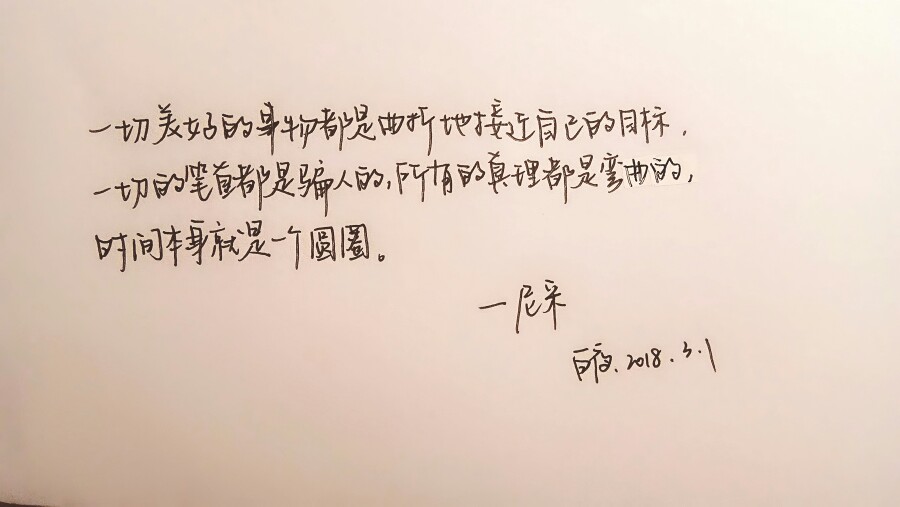 一切美好的事物都是曲折地接近自己的目标，
一切的笔直都是骗人的，所有的真理都是弯曲的，
时间本身就是一个圆圈。
—尼采
白夜.2018.3.1